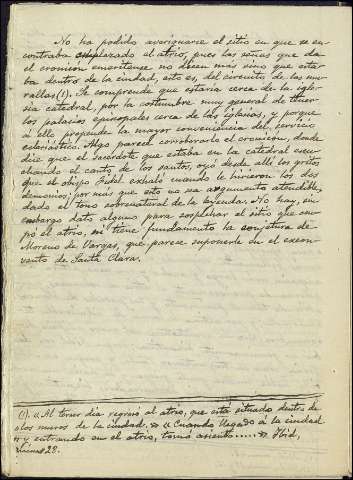 No ha podido averiguarse el sitio en que se en-
contraba emplazado el atrio, pues las señas que da
el cronicon emeritense no dicen más sino que esta-
ba dentro de la ciudad, esto es, del circuito de las mu-
rallas (1). Se comprende que estaria cerca de la igle-
sia catedral, por la costumbre muy general de tener
los palacios episcopales cerca de las iglesias, y porque
á ello propende la mayor conveniencia del servicio
eclesiástico. Algo parece corroborarlo el cronicon, donde
dice que el sacerdote que estaba en la catedral escu-
chando el canto de los santos, oyó desde allí los gritos
que el obispo Fidel exhaló cuando le hirieron los dos
demonios, por más que esto no sea argumento atendible,
dado el tono sobrenatural de la leyenda. No hay, sin
embargo dato alguno para señalar el sitio que ocu-
pó el atrio, ni tiene fundamento la conjetura de
Moreno de Vargas, que parece suponerle en el excon-
vento de Santa Clara.
(1). «Al tercer dia regresó al atrio, que está situado dentro de
los muros de la ciudad.» «Cuando llegado á la ciudad
y entrando en el atrio, tomó asiento.....» Ibid,
28.